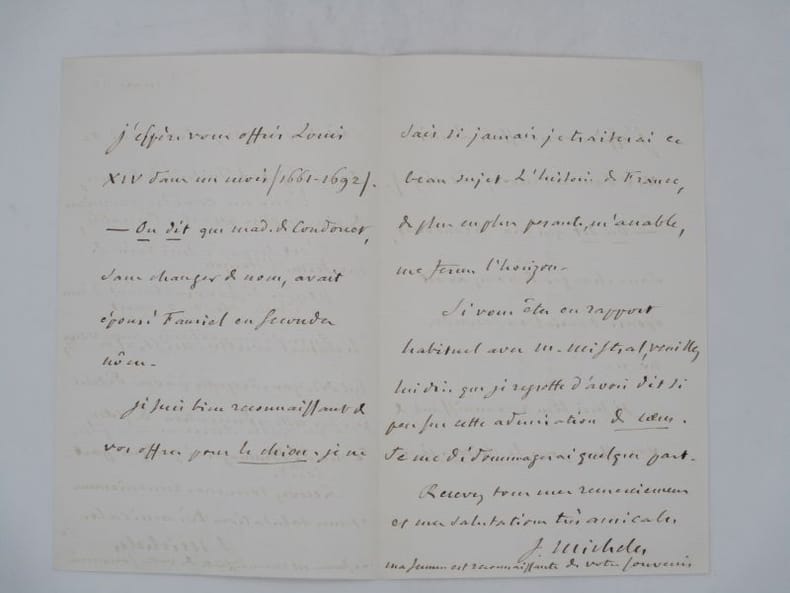 j'espère vous offrir Louis
XIV dans un mois (1661-1692).
— On dit que mad. de Condorcet,
sans changer de nom, avait
épousé Fauriel en secondes
nôces.
Je suis bien reconnaissant de
vos offres pour le chien. je ne
sais si jamais je traiterai ce
beau sujet. L'histoire de France,
de plus en plus pesante, m'accable,
me ferme l'horizon.
Si vous êtes en rapport
habituel avec m. mistral, veuillez
lui dire que je regrette d'avoir dit si
peu sur cette admiration de cœur.
Je me dédommagerai quelque part.
Recevez tous mes remerciemens
et mes salutations très amicales
J. Michelet
ma femme est reconnaissante de votre souvenir